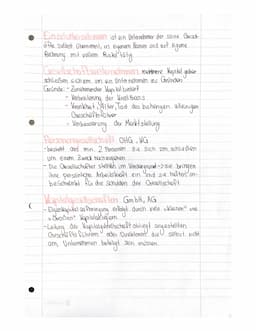 Einzelunternehmen ist ein Unternehmer der seine Gesch-
äfte selbst übernimmt, in eigenem Namen und auf eigene
Rechnung mit vollem Risiko tätig
Gesellschaftsunternehmen mehrere Kapitalgeber
schließen sich um ein Unternehmen zu Gründen
Gründe: - Zunehmender Kapitalbedarf
- Verbreiterung der Kreditbasis
- Krankheit, Alter, Tod des bisherigen alleinigen
Geschäftsführer
- Verbesserung der Marktstellung
Personengesellschaft OHG, KG
- besteht aus min. 2 Personen die sich zsm schließen
um einem Zweck nachzugehen
- Die Gesellschafter stehen im Vordergrund - sie bringen
ihre persönliche Arbeitskraft ein und sie haften un-
beschränkt für die Schulden der Gesellschaft.
Kapitalgesellschaften GmbH, AG
- Eigenkapitalaufbringung erfolgt durch viele "kleine" und
"Großen" Kapitalgebern
- Leitung der Kapitalgesellschaft obliegt angestellten
Geschäftsführern oder Direktoren die selbst nicht
am Unternehmen beteiligt sein müssen